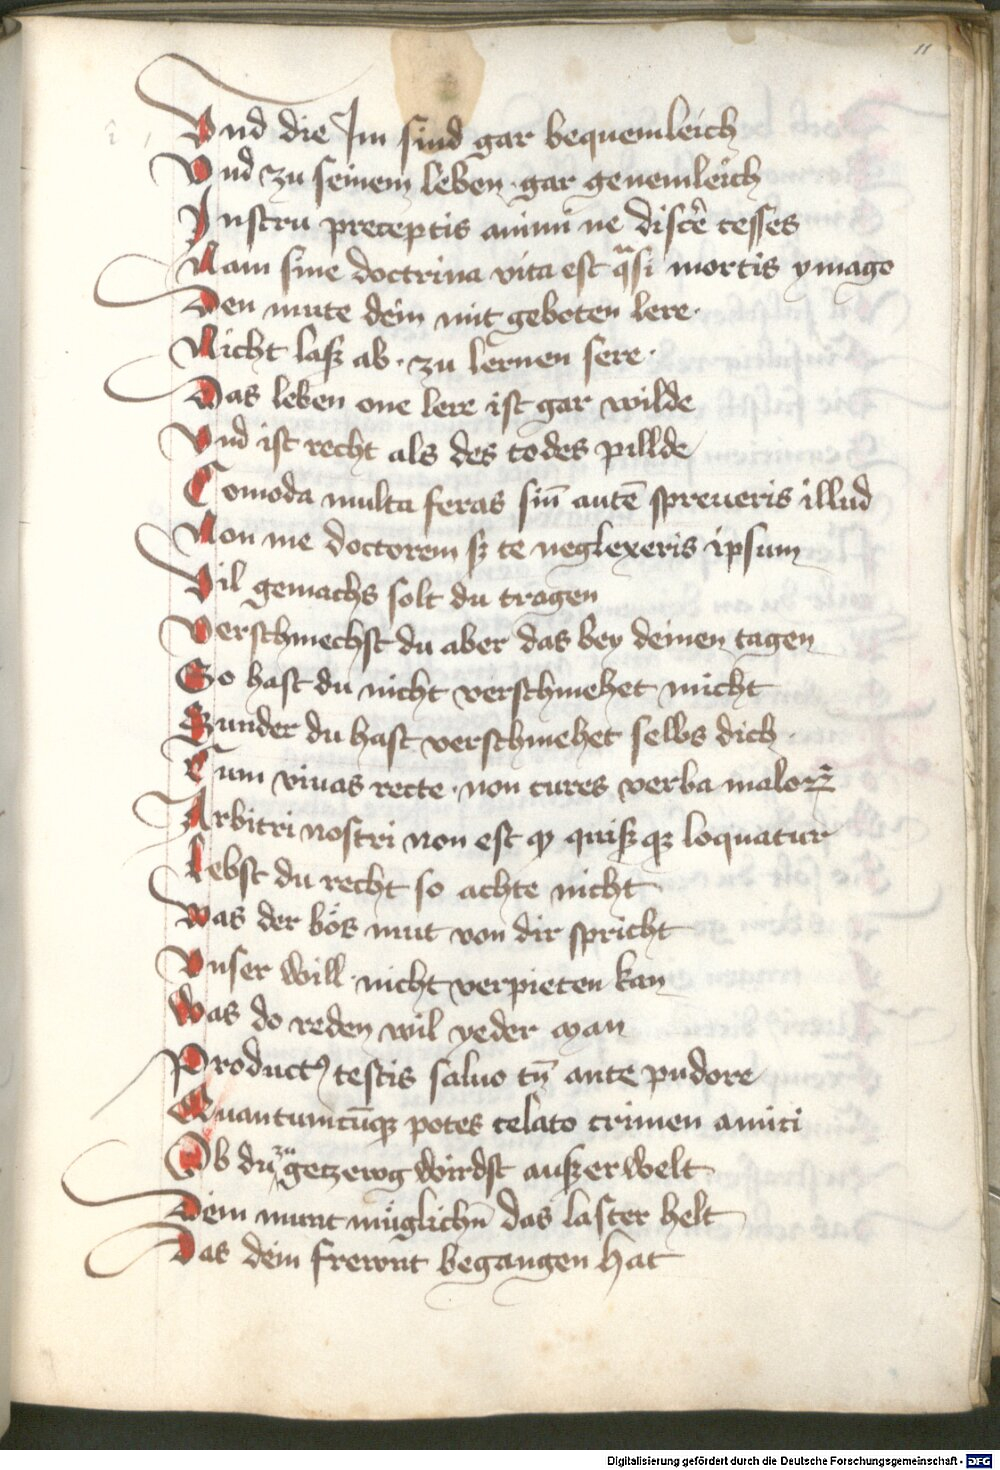 11
Vnd die Im sind gar bequemleich
Vnd zu seinem leben · gar genemleich
Instru preceptis animū ne discẽ cesses
Nam sine doctrina vita est qᵃsi mortis ymago
Den mute dein mit geboten lere ·
Nicht lasz ab · zu lernen sere ·
Das leben one lere ist gar wilde
Vnd ist recht als des todes pillde
Comoda multa feras sin̄ autē spreueris illud
Non me doctorem sꝫ te neglexeris ipsum
Vil gemachs solt du tragen
Verschmechst du aber das bey deinen tagen
So hast du nicht verschmehet mich
Sunder du hast verschmehet selbs dich
Cum viuas recte · non cures verba maloꝝ
Arbitri nostri non est ꝙ quisz qꝫ loquatur
Lebst du recht so achte nicht
Was der bös mut von dir spricht
Vnser will · nicht verpieten kan
Was do reden wil yeder man
Productꝰ testis saluo tn̄ ante pudore
Quantumcūqꝫ potes celato crimen amici
Ob du zu getzewg wirdst ausz erwelt
Dein munt müglichn̄ das laster helt
Das dein frewnt begangen hat
Digitalisierung gefördert durch die Deutsche Forschungsgemeinschaft - DFG